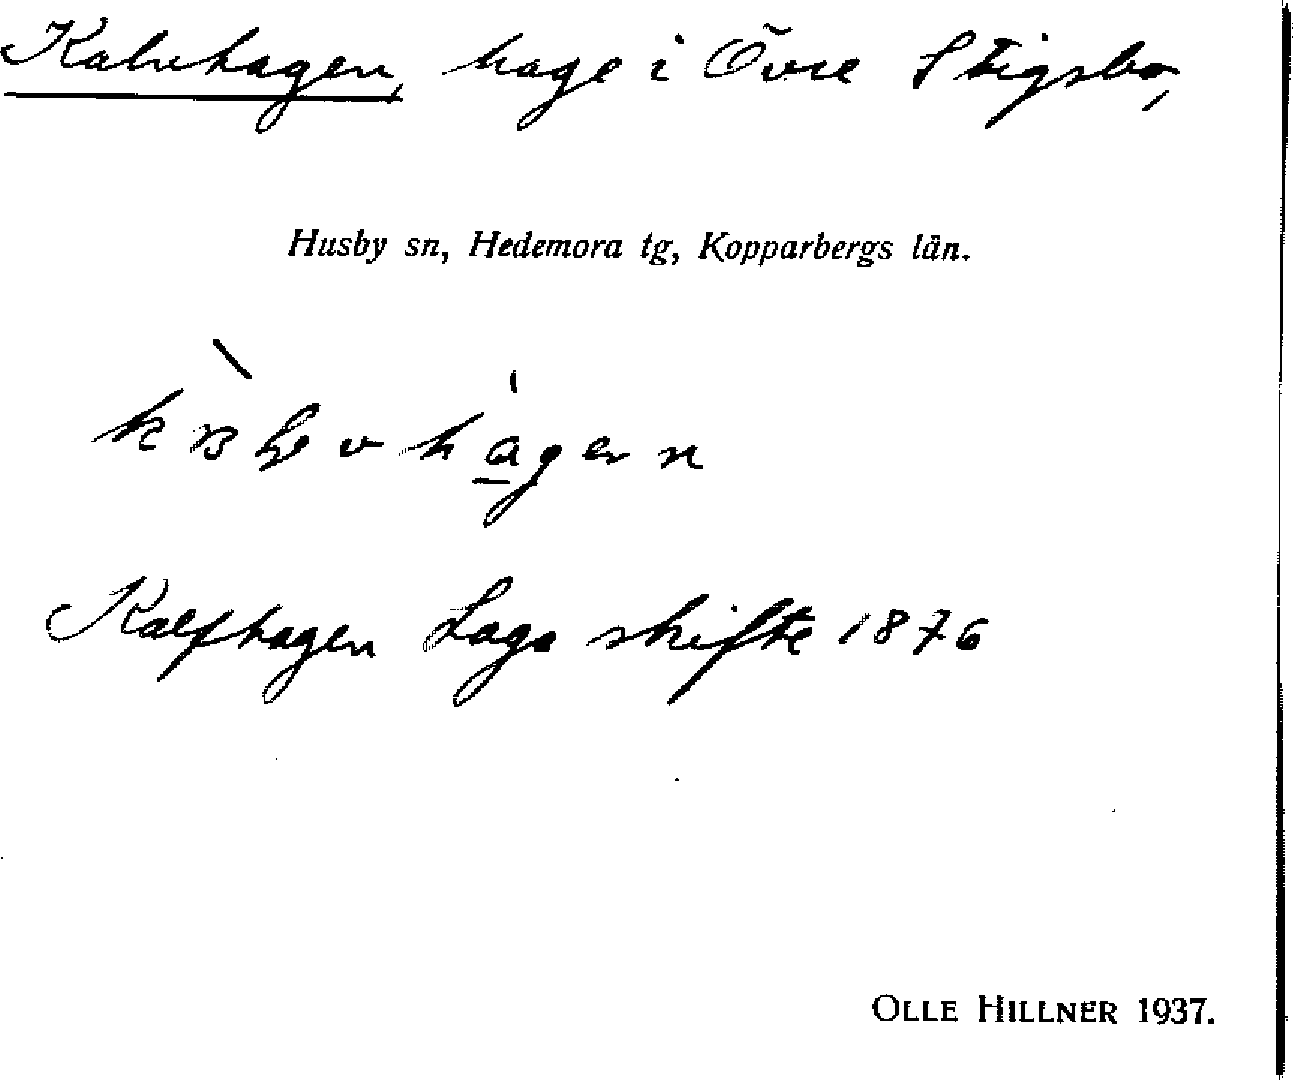 Kalvhagen, hage i Övre Stigsbo,
Husby sn, Hedemora tg, Kopparbergs län.
Kalfhagen Laga skifte 1876
OLLE HILLNER 1937.